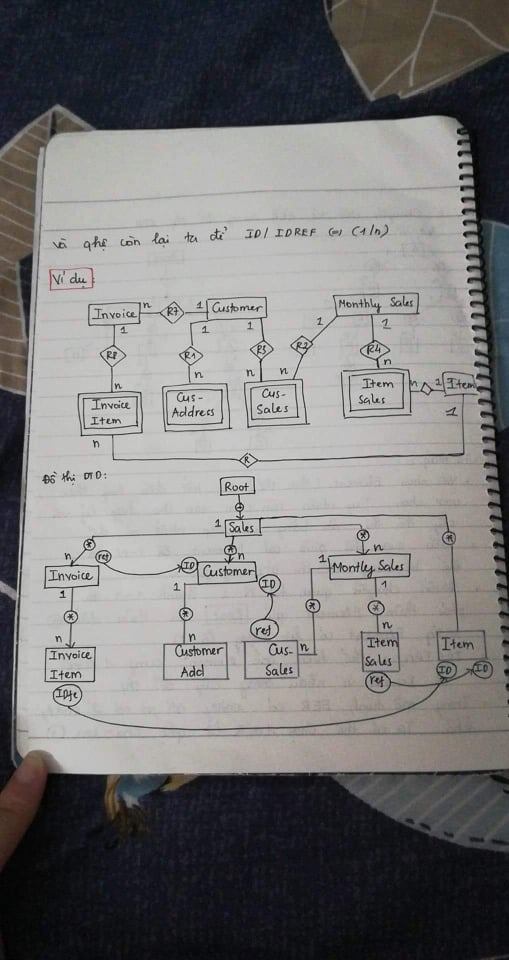 và ghệ còn lại ta để ID/IDREF (=) (1/n)
Ví dụ:
Invoice n R7 1 Customer Monthly Sales
1 1 1 1 1
R8 R1 R3 R2 R4
n n n n n
Invoice Item Cus-Address Cus-Sales Item Sales n 1 Item
n 1
R
Đồ thị DTD:
Root
1 Sales
* * * *
n ref ID n n
Invoice Customer ID 1 Montly Sales
1 1 1
* * * *
n n ref n
Invoice Item Customer Add Cus-Sales n Item Sales Item
ref ID ID